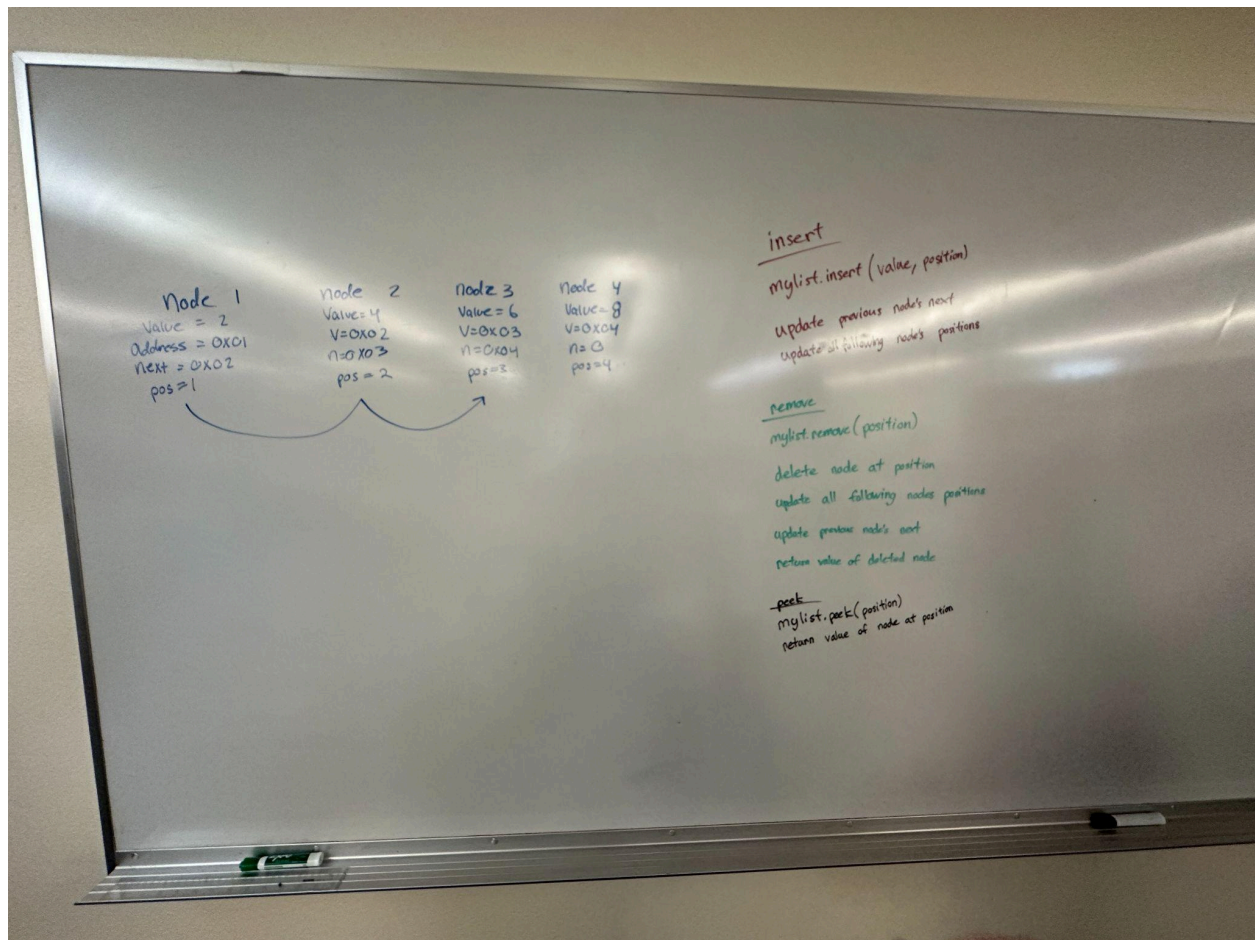 node 1
value = 2
address = 0x01
next = 0x02
pos=1
node 2
Value=4
V=0x02
n=0x03
pos=2
node 3
Value=6
V=0x03
n=0x04
pos=3
Node 4
Value=8
V=0x04
n=0
pos=4
insert
mylist.insert(value, position)
update previous node's next
update all following node's positions
remove
mylist.remove(position)
delete node at position
update all following nodes positions
update previous node's next
return value of deleted node
peek
mylist.peek(position)
return value of node at position